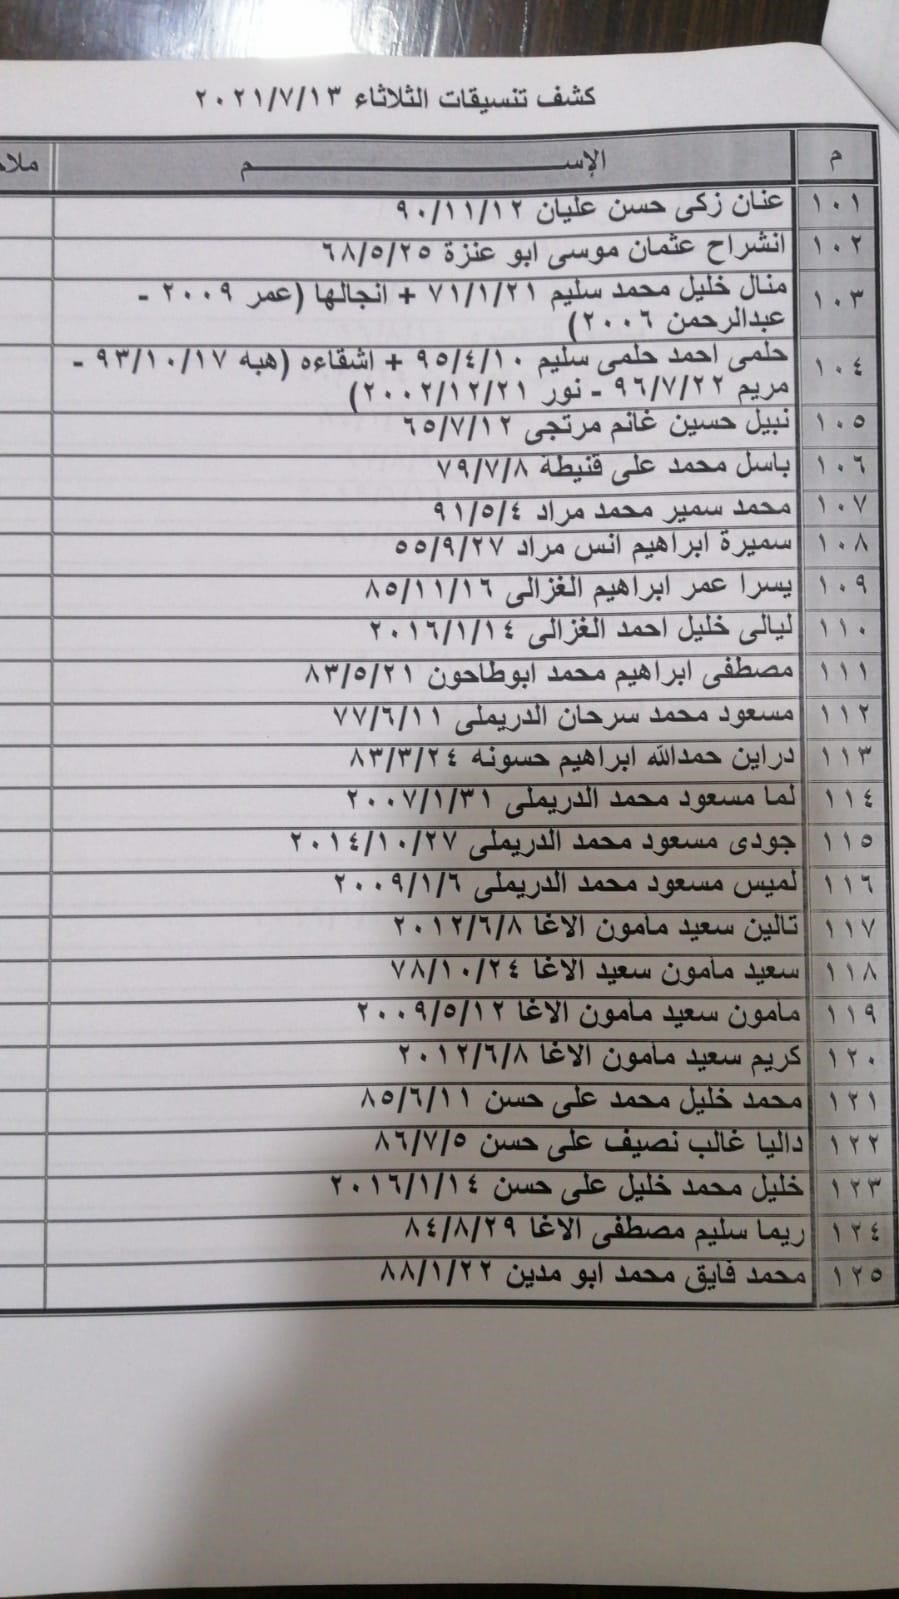 كشف تنسيقات الثلاثاء ٢٠٢١/٧/١٣
م الإســـــــــم
١٠١ عنان زكى حسن عليان ٩٠/١١/١٢
١٠٢ انشراح عثمان موسى ابو عنزة ٦٨/٥/٢٥
١٠٣ منال خليل محمد سليم ٧١/١/٢١ + انجالها (عمر ٢٠٠٩ -
عبدالرحمن ٢٠٠٦)
١٠٤ حلمى احمد حلمى سليم ٩٥/٤/١٠ + اشقاءه (هبه ٩٣/١٠/١٧ -
مريم ٩٦/٧/٢٢ - نور ٢٠٠٢/١٢/٢١)
١٠٥ نبيل حسين غانم مرتجى ٦٥/٧/١٢
١٠٦ باسل محمد على قنيطة ٧٩/٧/٨
١٠٧ محمد سمير محمد مراد ٩١/٥/٤
١٠٨ سميرة ابراهيم انس مراد ٥٥/٩/٢٧
١٠٩ يسرا عمر ابراهيم الغزالى ٨٥/١١/١٦
١١٠ ليالى خليل احمد الغزالى ٢٠١٦/١/١٤
١١١ مصطفى ابراهيم محمد ابوطاحون ٨٣/٥/٢١
١١٢ مسعود محمد سرحان الدريملى ٧٧/٦/١١
١١٣ دراين حمدالله ابراهيم حسونه ٨٣/٣/٢٤
١١٤ لما مسعود محمد الدريملى ٢٠٠٧/١/٣١
١١٥ جودى مسعود محمد الدريملى ٢٠١٤/١٠/٢٧
١١٦ لميس مسعود محمد الدريملى ٢٠٠٩/١/٦
١١٧ تالين سعيد مامون الاغا ٢٠١٢/٦/٨
١١٨ سعيد مامون سعيد الاغا ٧٨/١٠/٢٤
١١٩ مامون سعيد مامون الاغا ٢٠٠٩/٥/١٢
١٢٠ كريم سعيد مامون الاغا ٢٠١٢/٦/٨
١٢١ محمد خليل محمد على حسن ٨٥/٦/١١
١٢٢ داليا غالب نصيف على حسن ٨٦/٧/٥
١٢٣ خليل محمد خليل على حسن ٢٠١٦/١/١٤
١٢٤ ريما سليم مصطفى الاغا ٨٤/٨/٢٩
١٢٥ محمد فايق محمد ابو مدين ٨٨/١/٢٢